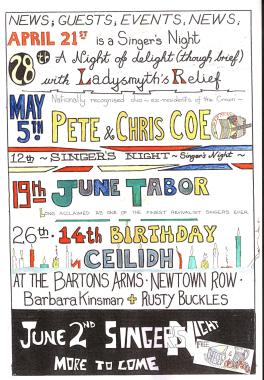 NEWS; GUESTS; EVENTS, NEWS;
APRIL 21ST is a Singer's Night
28th A Night of delight (though brief)
with Ladysmyth's Relief
MAY 5TH
Nationally recognised duo - ex-residents of the Crown -
PETE & CHRIS COE
12th ~ SINGER'S NIGHT ~ Singer's Night ~
19th JUNE TABOR
LONG ACCLAIMED AS ONE OF THE FINEST REVIVALIST SINGERS EVER
26th. 14th BIRTHDAY
CEILIDH
AT THE BARTONS ARMS · NEWTOWN ROW ·
Barbara Kinsman + RUSTY BUCKLES
JUNE 2ND SINGERS NIGHT
MORE TO COME
FREE